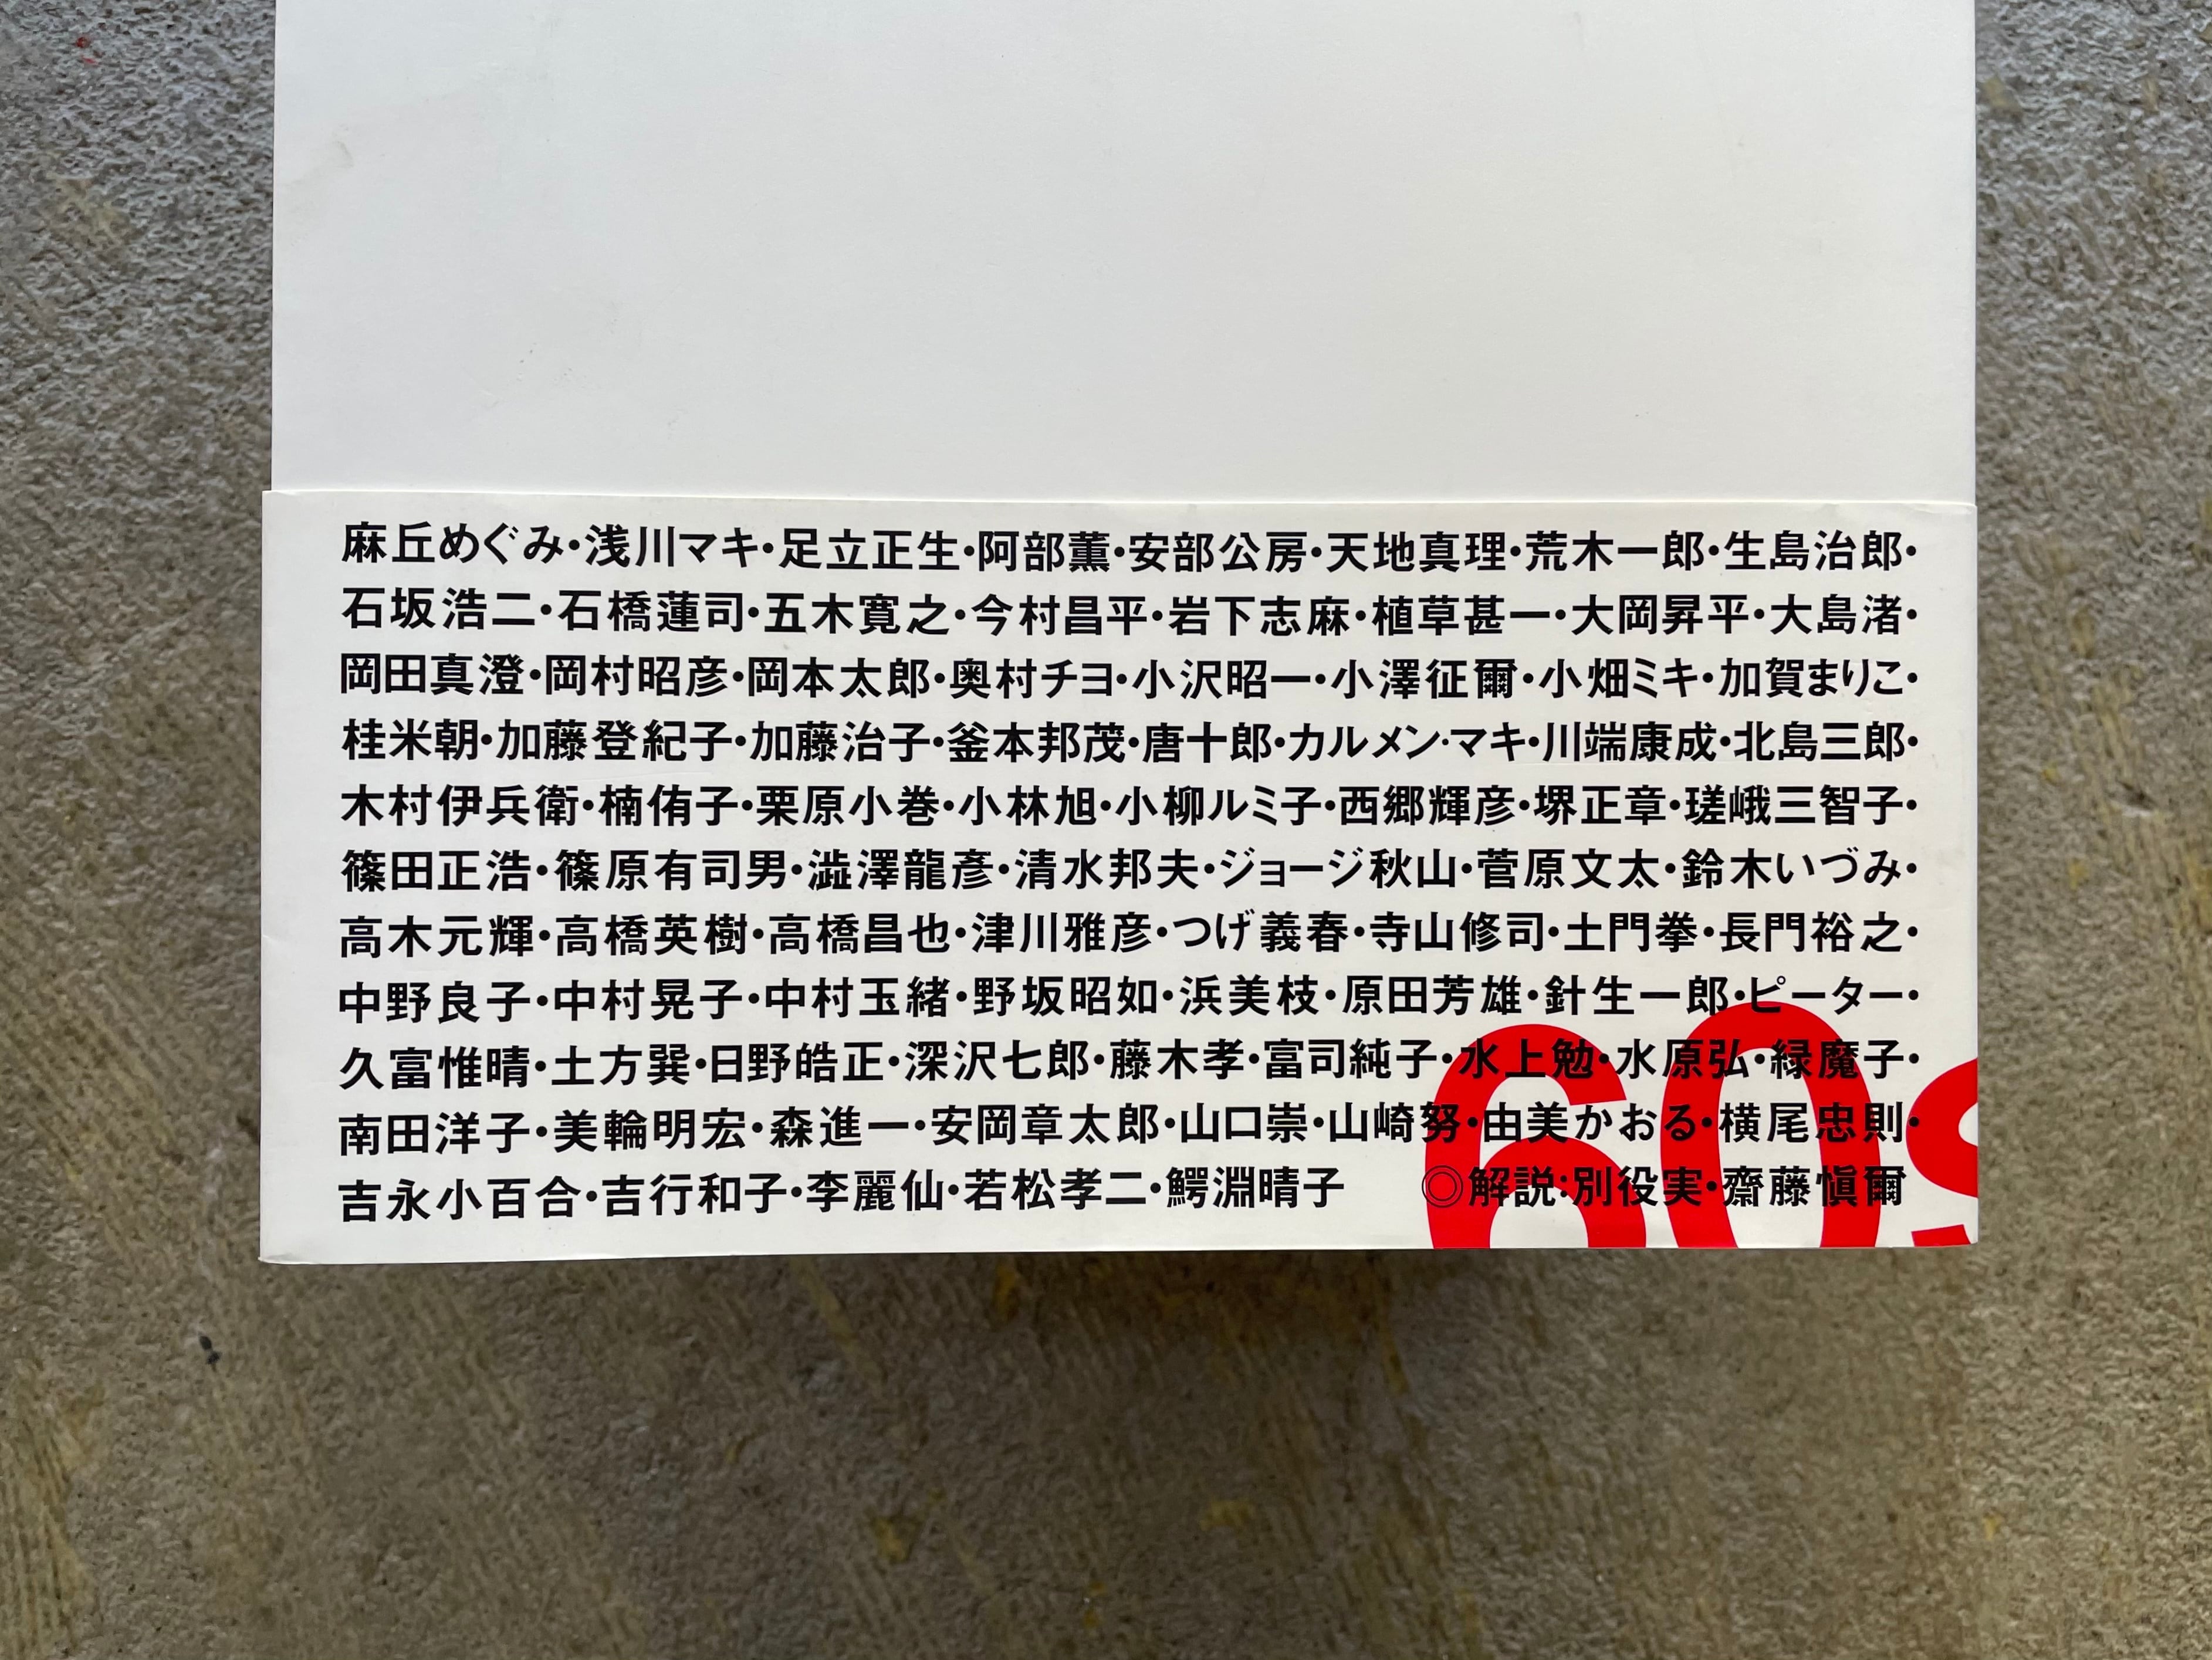 麻丘めぐみ・浅川マキ・足立正生・阿部薫・安部公房・天地真理・荒木一郎・生島治郎・
石坂浩二・石橋蓮司・五木寛之・今村昌平・岩下志麻・植草甚一・大岡昇平・大島渚・
岡田真澄・岡村昭彦・岡本太郎・奥村チヨ・小沢昭一・小澤征爾・小畑ミキ・加賀まりこ・
桂米朝・加藤登紀子・加藤治子・釜本邦茂・唐十郎・カルメン・マキ・川端康成・北島三郎・
木村伊兵衛・楠侑子・栗原小巻・小林旭・小柳ルミ子・西郷輝彦・堺正章・瑳峨三智子・
篠田正浩・篠原有司男・澁澤龍彦・清水邦夫・ジョージ秋山・菅原文太・鈴木いづみ・
高木元輝・高橋英樹・高橋昌也・津川雅彦・つげ義春・寺山修司・土門拳・長門裕之・
中野良子・中村晃子・中村玉緒・野坂昭如・浜美枝・原田芳雄・針生一郎・ピーター・
久富惟晴・土方巽・日野皓正・深沢七郎・藤木孝・富司純子・水上勉・水原弘・緑魔子・
南田洋子・美輪明宏・森進一・安岡章太郎・山口崇・山崎努・由美かおる・横尾忠則・
吉永小百合・吉行和子・李麗仙・若松孝二・鰐淵晴子　◎解説：別役実・齋藤愼爾
60s